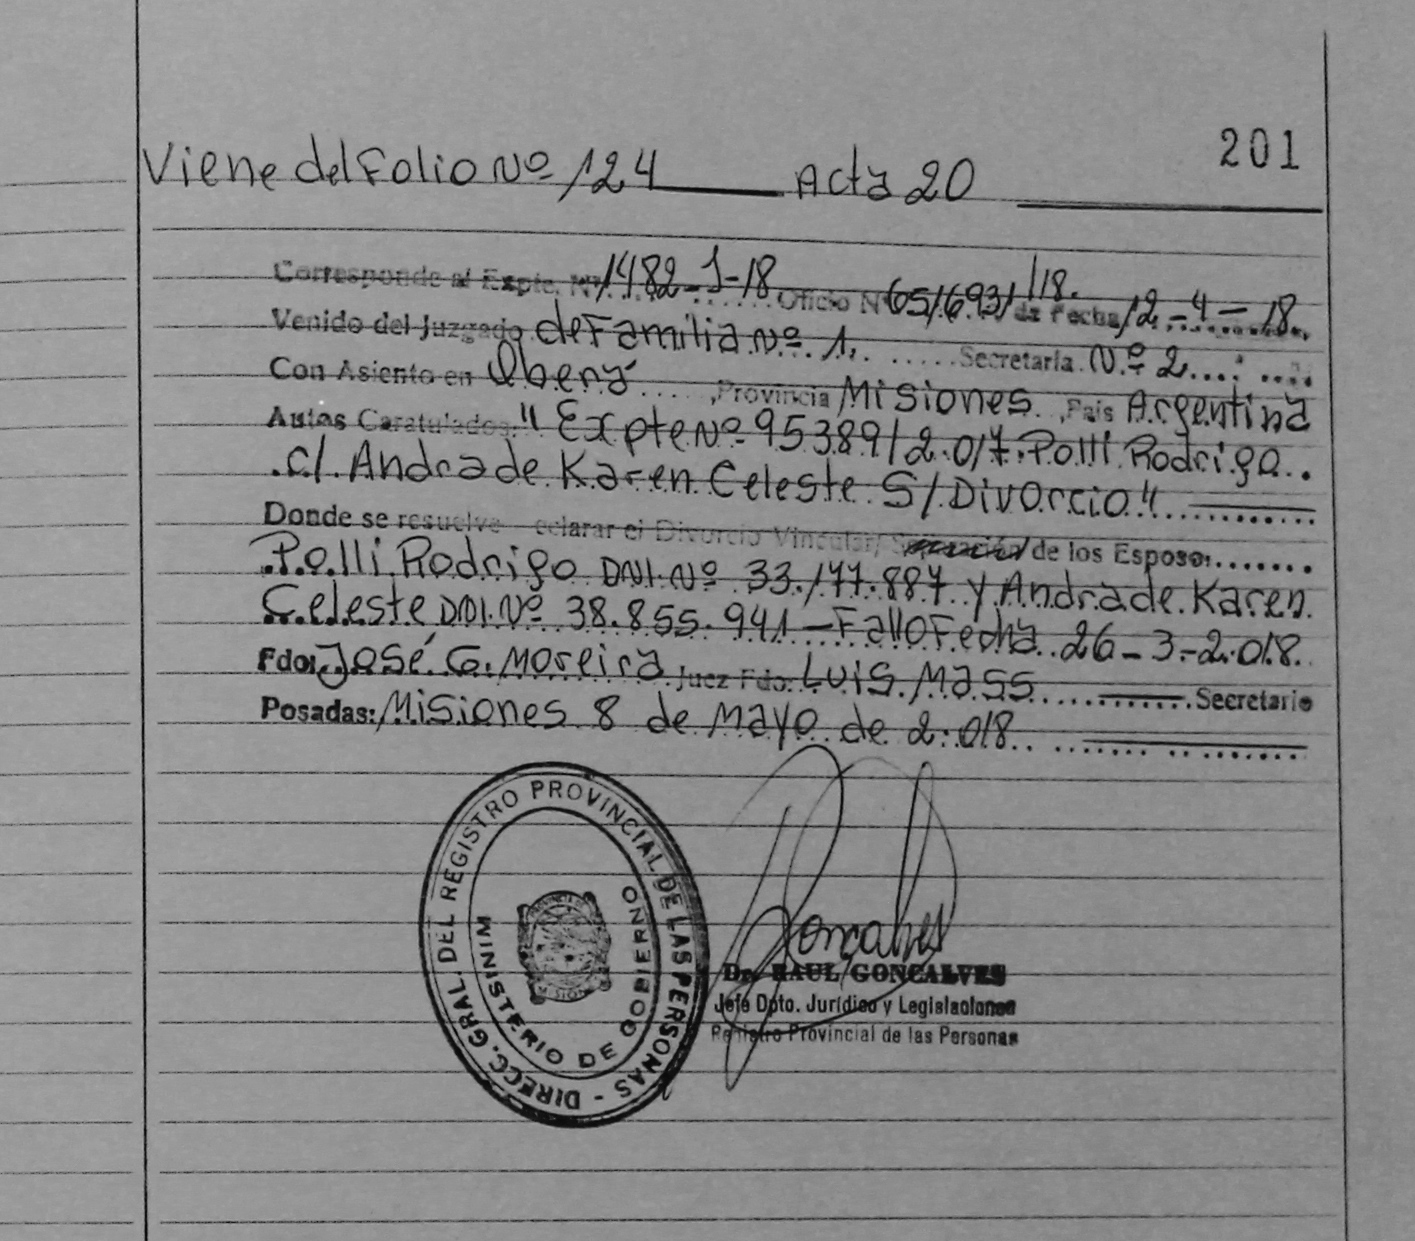 201
Viene del Folio Nº 124 Acta 20
Corresponde al Expte. Nº 1482-J-18 Oficio Nº 65/693/18. de Fecha 12-4-18
Venido del Juzgado de Familia Nº 1, Secretaría Nº 2
Con Asiento en Oberá, Provincia Misiones, País Argentina
Autos Caratulados: "Expte Nº 95389/2017. Polli Rodrigo
c/ Andrade Karen Celeste S/ Divorcio"
Donde se resuelve eclarar el Divorcio Vincular/ Separación de los Esposo:
Polli Rodrigo DNI. Nº 33.177.887 y Andrade Karen
Celeste DNI. Nº 38.855.941 - Fallo Fecha 26-3-2.018.
Fdo: José G. Moreira Juez Fdo: Luis Mass Secretario
Posadas: Misiones 8 de Mayo de 2.018
DIRECC. GRAL. DEL REGISTRO PROVINCIAL DE LAS PERSONAS -
MINISTERIO DE GOBIERNO
Goncalves
Dr. RAUL GONCALVES
Jefe Dpto. Jurídico y Legislaciones
Registro Provincial de las Personas